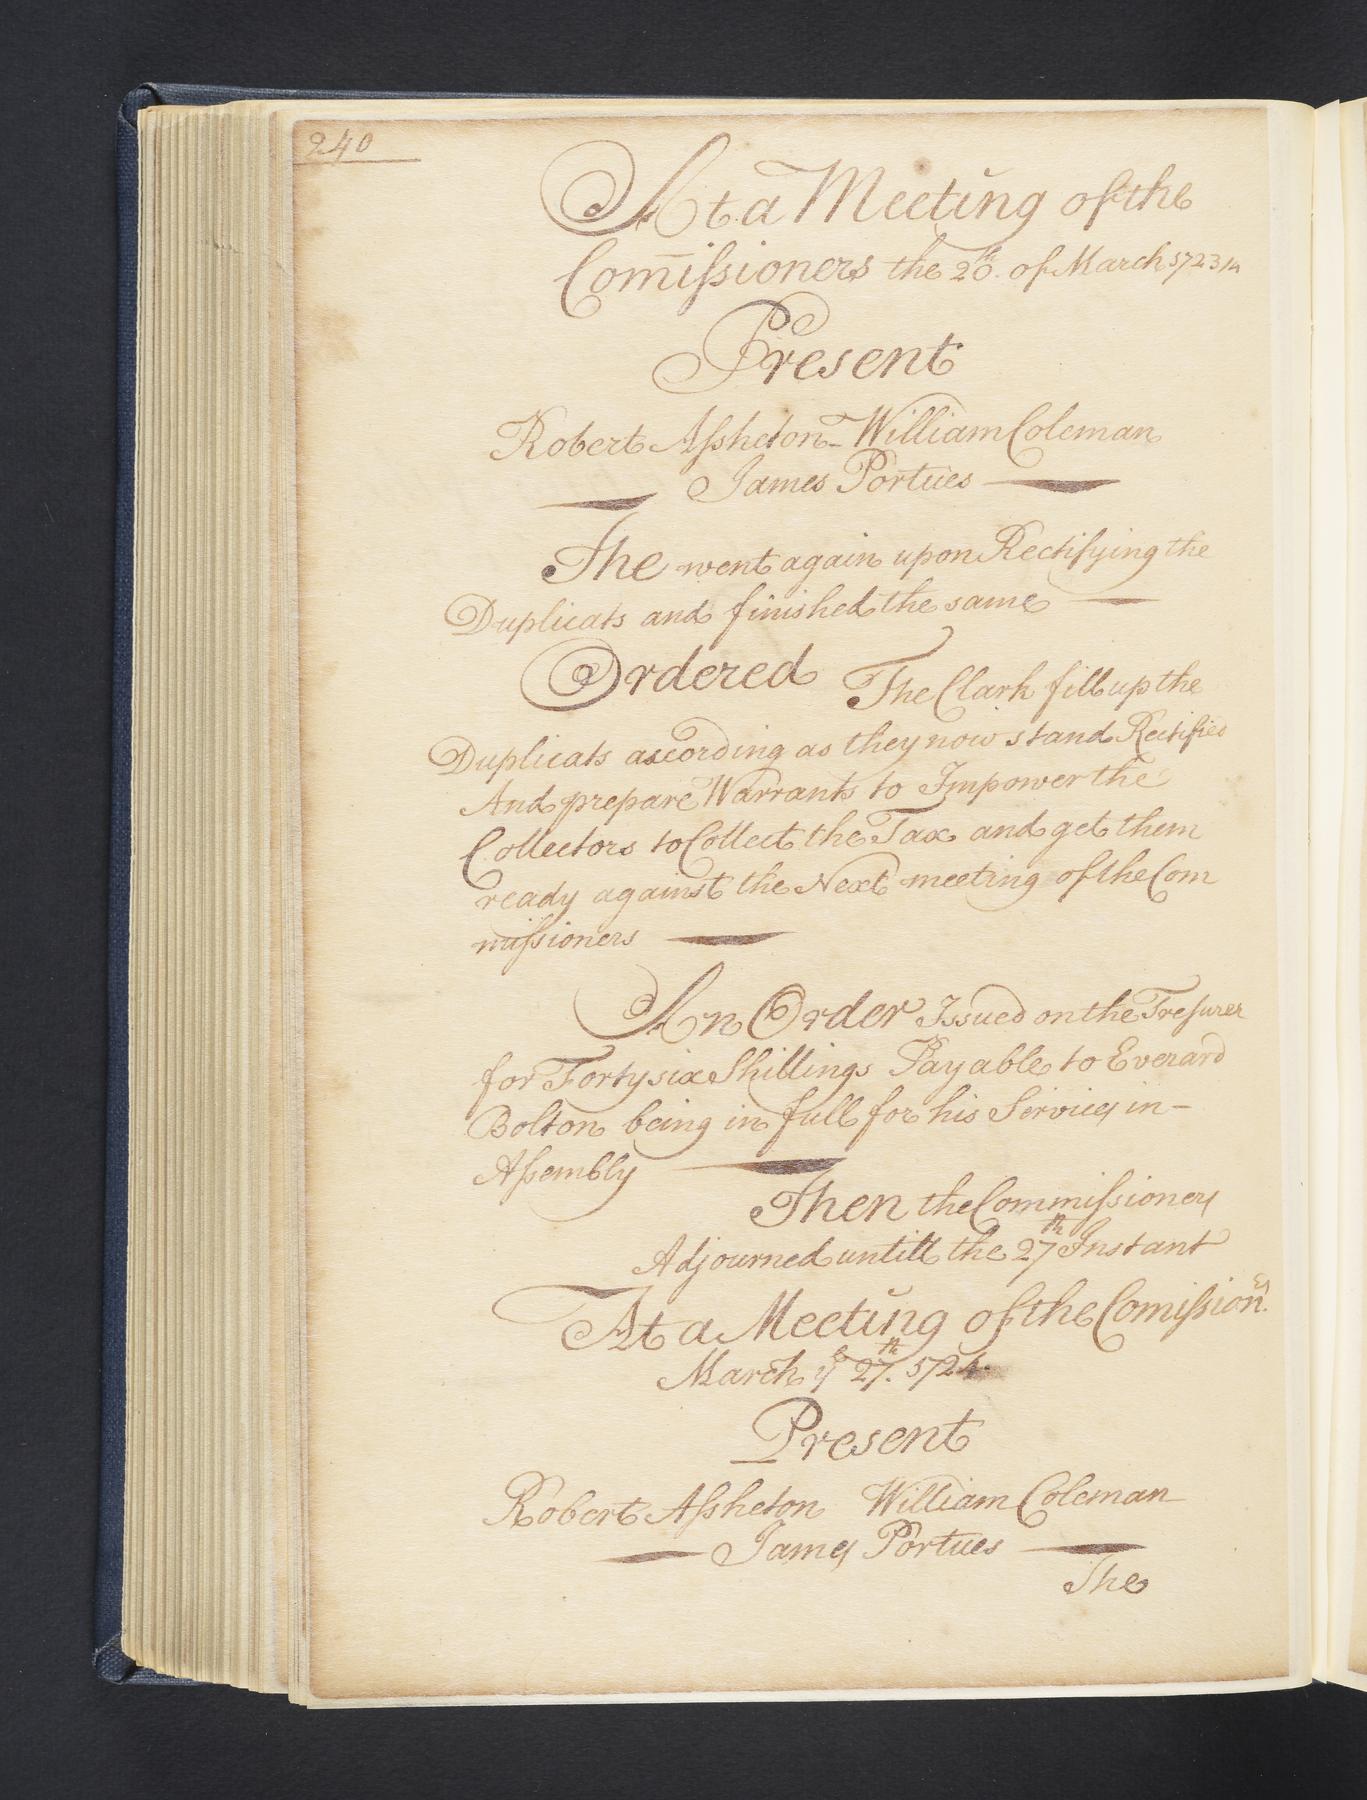 240
At a Meeting of the
Com̄issioners the 20th. of March 1723/4
Present
Robert Assheton - William Coleman
James Portues
The went again upon Rectifying the
Duplicats and finished the same
Ordered The Clark fill up the
Duplicats ascording as they now stand Rectified
And prepare Warrants to Impower the
Collectors to Collect the Tax and get them
ready against the Next meeting of the Com
missioners
An Order Issued on the Tresurer
for Forty six Shillings Payable to Everard
Bolton being in full for his Services in -
Assembly
Then the Commissioners
Adjourned untill the 27th Instant
At a Meeting of the Comission.es
March ye 27th. 1724.
Present
Robert Assheton William Coleman
James Portues
The